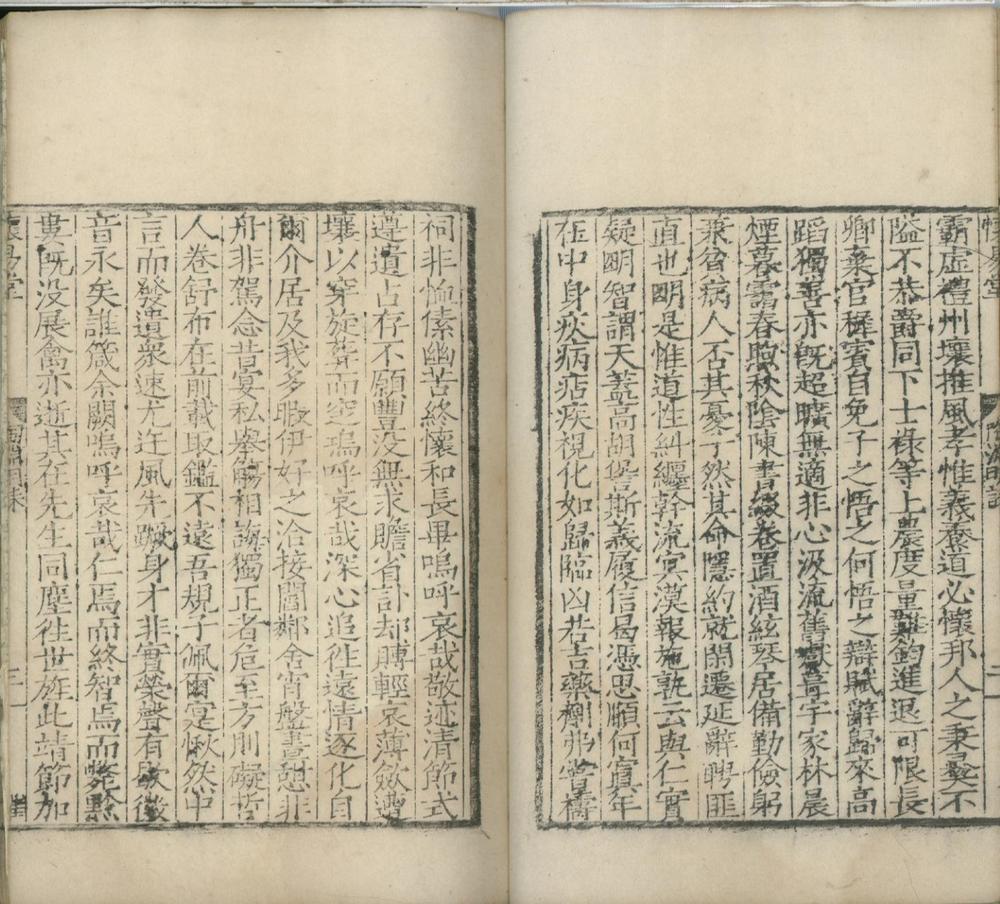 霸虛禮州壤推風孝惟義養道必懷邦人之秉彝不
隘不恭爵同下士祿等上農度量難鈞進退可限長
卿棄官稚賓自免子之悟之何悟之辯賦辭歸來高
蹈獨善亦旣超曠無適非心汲流舊巘葺宇家林晨
煙暮靄春煦秋陰陳書綴卷置酒絃琴居備勤儉躬
兼貧病人否其憂子然其命隱約就閑遷延辭聘匪
直也明是惟道性糾纏幹流冥漠報施孰云與仁實
疑明智謂天蓋高胡諐斯義履信曷憑思順何寘年
在中身疢病痁疾視化如歸臨凶若吉藥劑弗嘗禱
祠非恤傃幽苦終懷和長畢嗚呼哀哉敬述清節式
遵遺占存不願豐没無求贍省訃却賻輕哀薄斂遭
壤以穿旋葬而窆嗚呼哀哉深心追往遠情逐化自
爾介居及我多暇伊好之洽接閻鄰舍宵盤晝憩非
舟非駕念昔宴私舉觴相誨獨正者危至方則礙哲
人卷舒布在前載取鑑不遠吾規子佩爾寔愀然中
言而發違衆速尤迕風先蹶身才非實榮聲有歇徽
音永矣誰箴余闕嗚呼哀哉仁焉而終智焉而斃黔
婁既没展禽亦逝其在先生同塵往世旌此靖節加